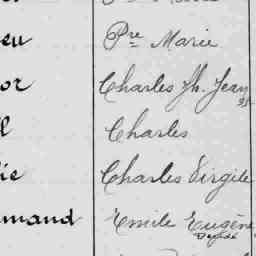 eu Pre Marie
or Charles Jh. Jean
l Charles
ie Charles Virgile
mand Emile Eugène